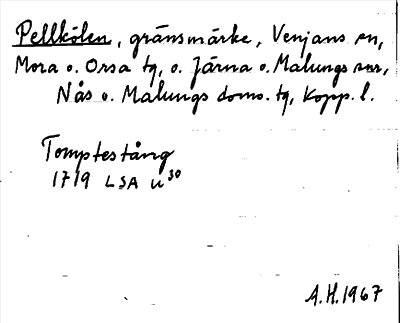 Pellkölen, gränsmärke, Venjans sn,
Mora o. Orsa tg, o. Järna o. Malungs snr,
Nås o. Malungs doms. tg, Kopp. l.
Tomptestång
1719 LSA u30
A.H. 1967